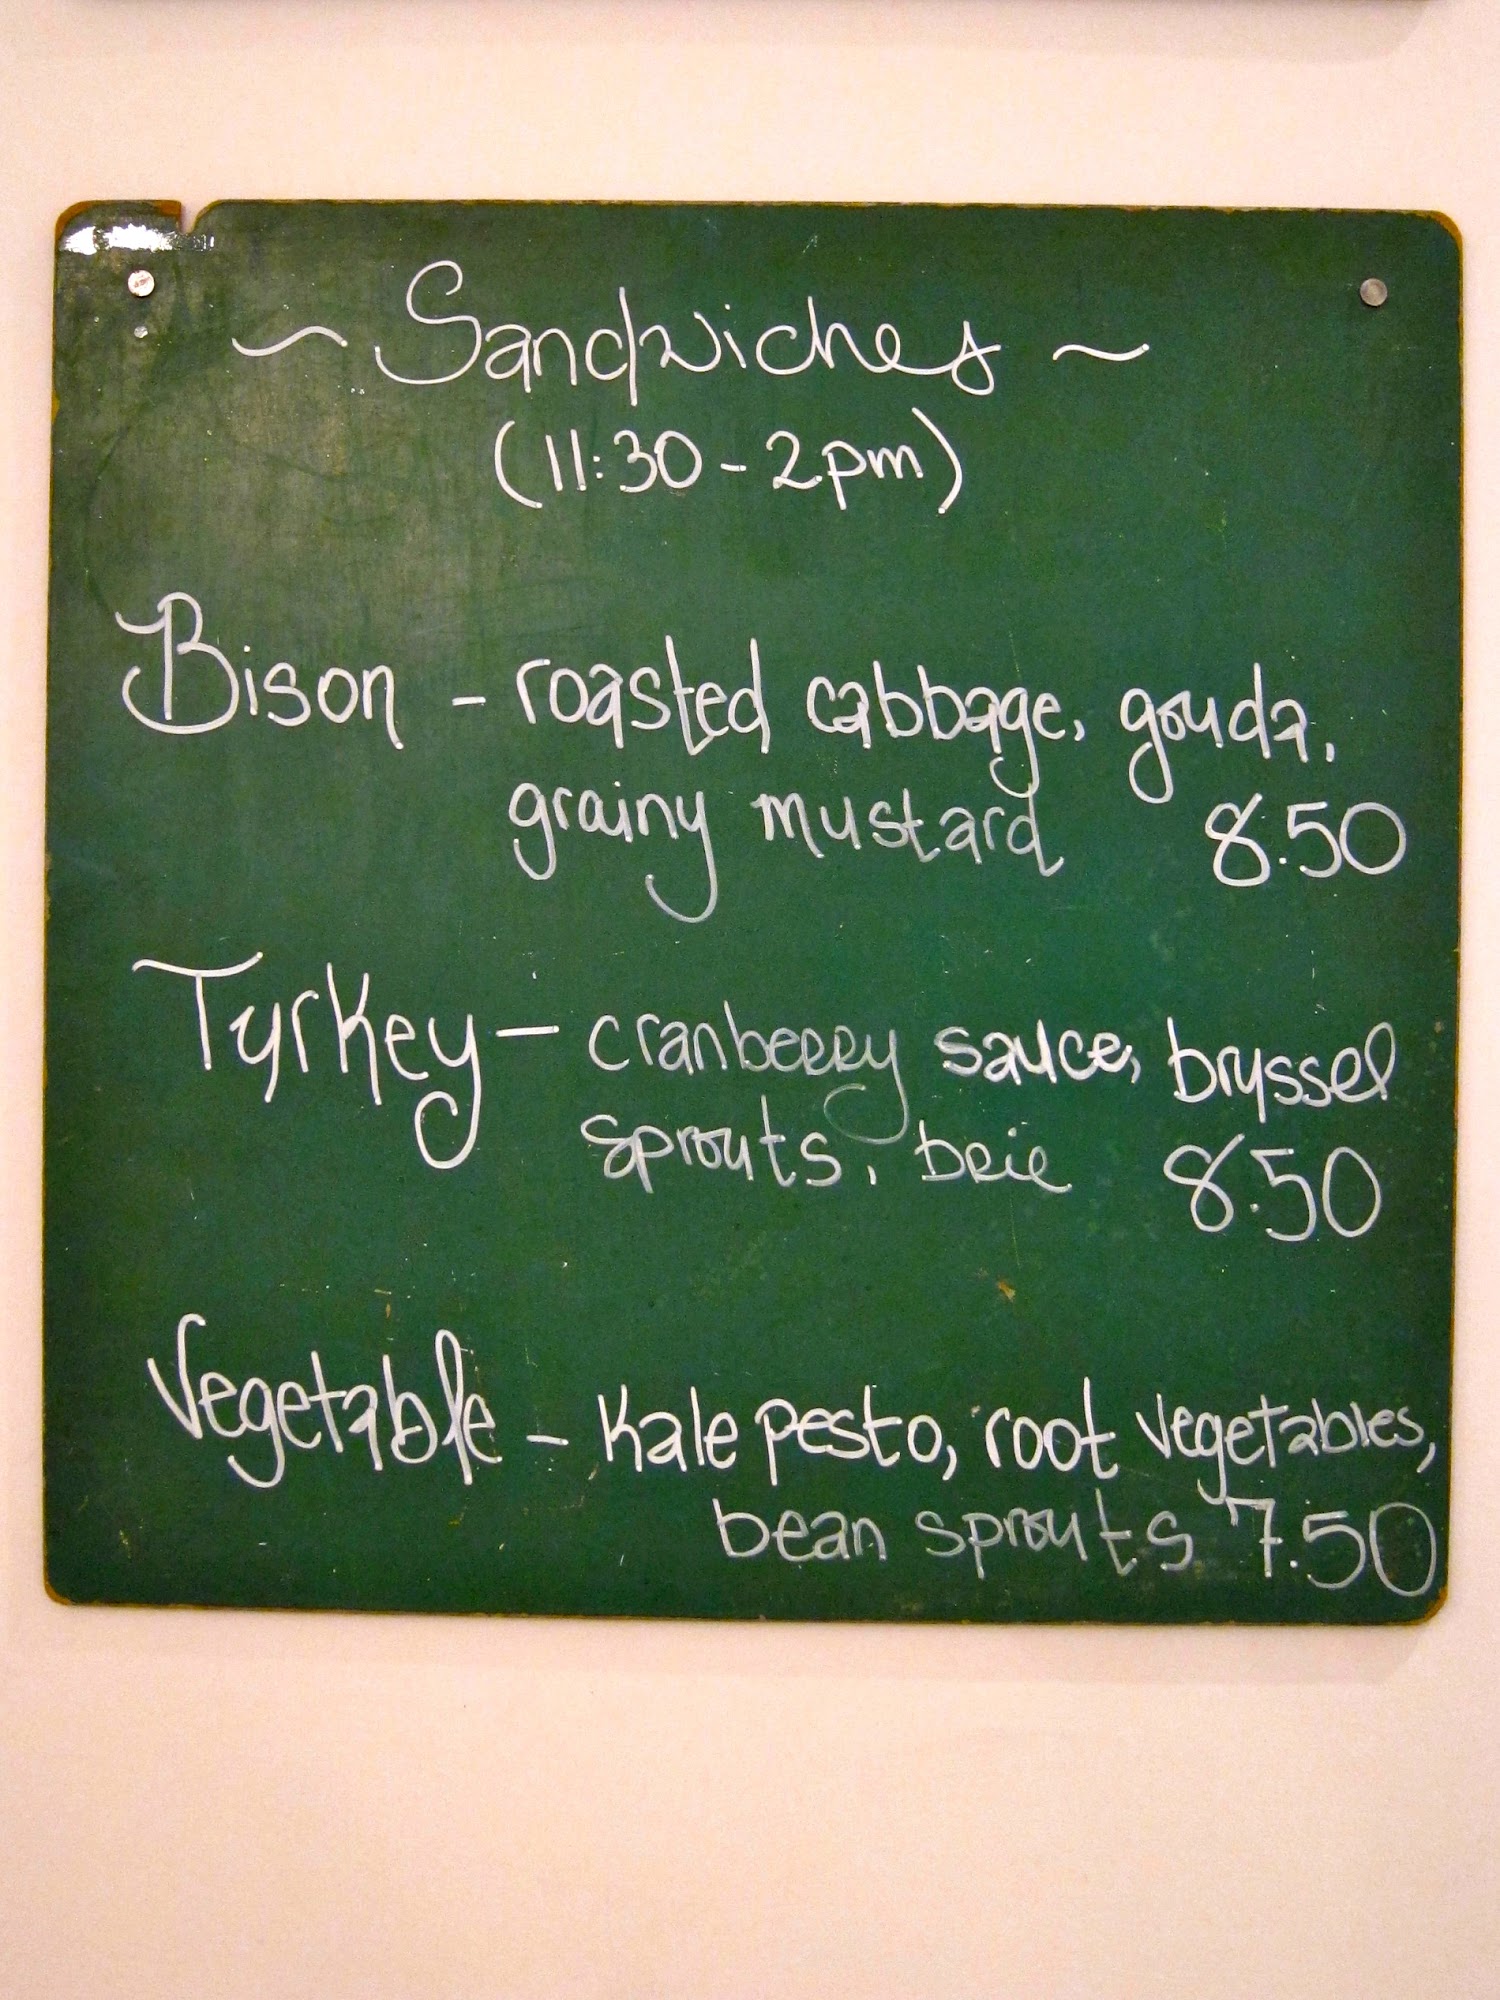 ~ Sandwiches ~
(11:30 - 2pm)
Bison - roasted cabbage, gouda,
grainy mustard 8.50
Turkey - cranberry sauce, brussel
sprouts, brie 8.50
Vegetable - Kale pesto, root vegetables,
bean sprouts 7.50